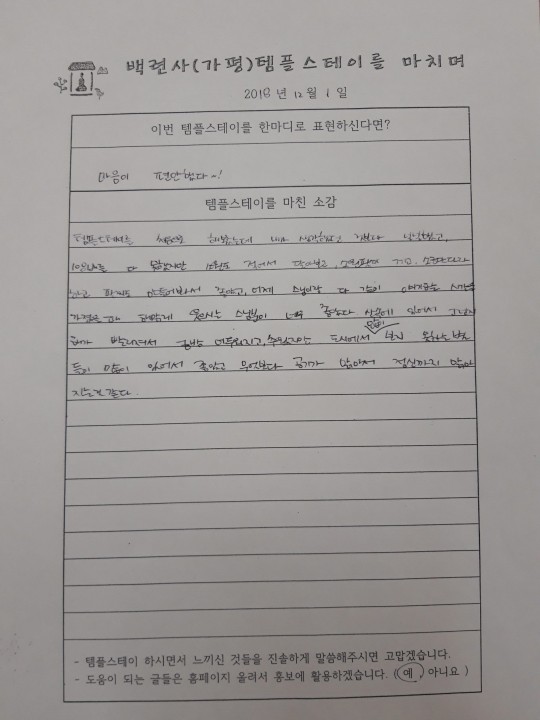 백련사(가평)템플스테이를 마치며
2018년 12월 1일
이번 템플스테이를 한마디로 표현하신다면?
마음이 편안했다~!
템플스테이를 마친 소감
템플스테이를 처음으로 해봤는데 내가 생각했던 것보다
다 못했지만 소원도 적어서 달아보고,
만들어봐서 좋았고, 어제 스님이랑 다 같이
스님분이 너무 좋았다 산속에 있어서
해가 빨리져서 금방 어두워지고, 수원에있는 도시에서 많이 보지 못하는 별
들이 많이 있어서 좋았고 무엇보다 공기가 맑아서 정신까지 맑아
지는것 같다.
- 템플스테이 하시면서 느끼신 것들을 진솔하게 말씀해주시면 고맙겠습니다.
- 도움이 되는 글들은 홈페이지 올려서 홍보에 활용하겠습니다. ( 예 , 아니요 )